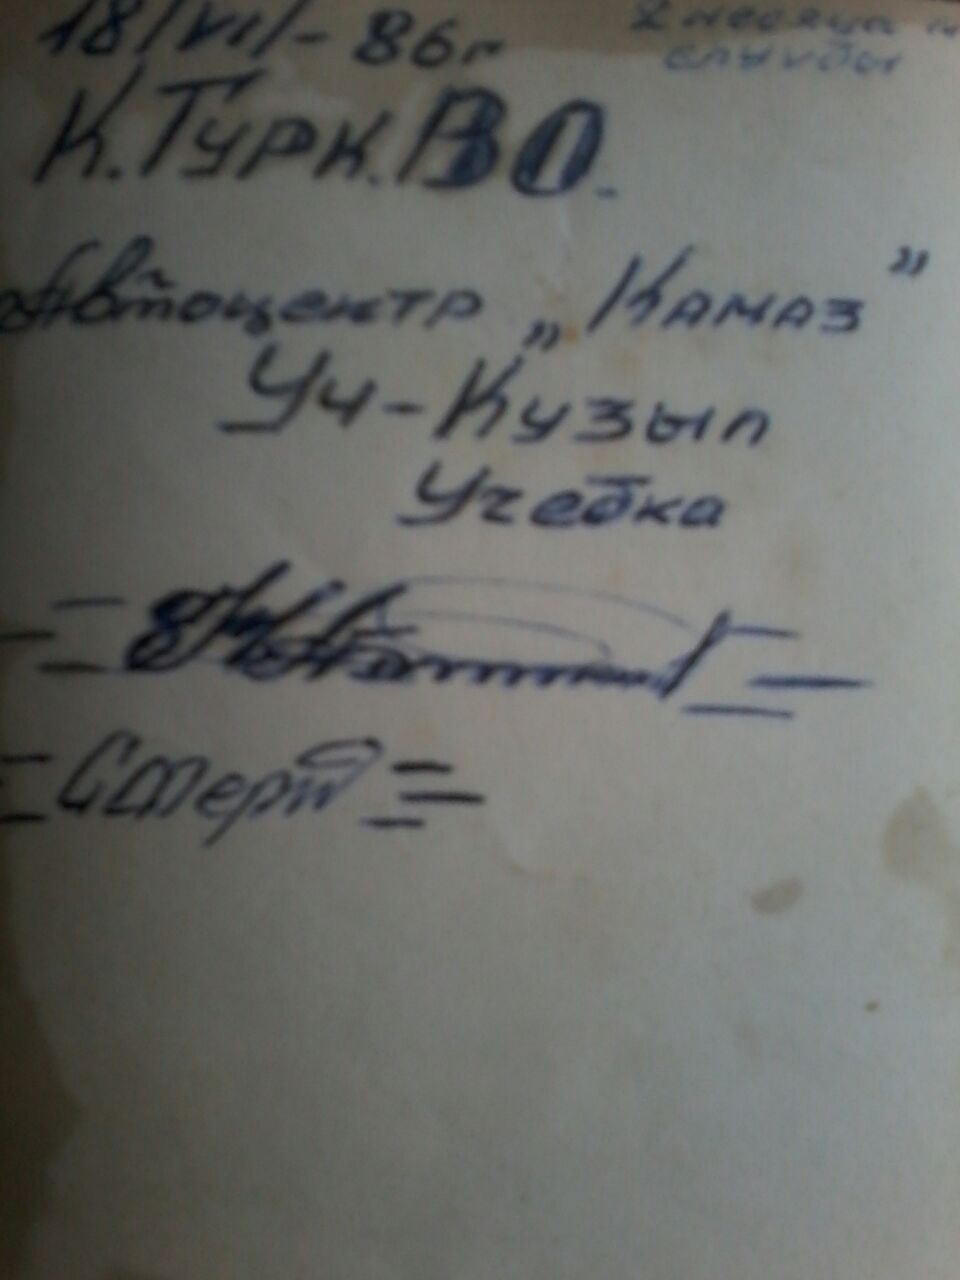 18/VI/- 86г
2 месяца
службы
К.Турк.ВО.
Автоцентр „Камаз”
Уч-Кузыл
Учебка